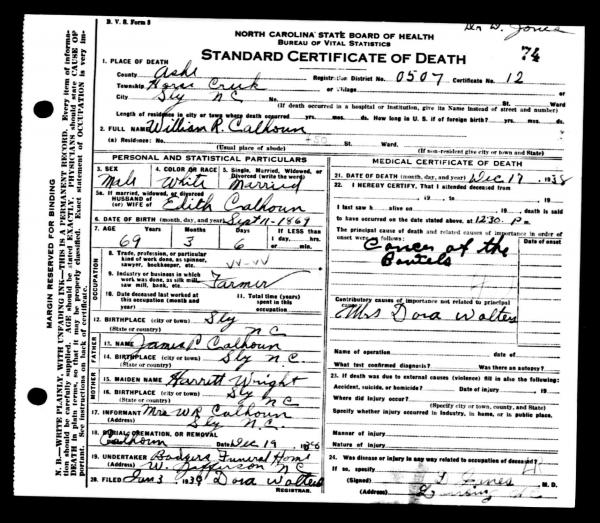 D. V. S. Form 8
Dr D. Jones
NORTH CAROLINA STATE BOARD OF HEALTH
BUREAU OF VITAL STATISTICS
STANDARD CERTIFICATE OF DEATH
74
1. PLACE OF DEATH
County Ashe Registration District No. 0507 Certificate No. 12
Township Horse Creek or Village
City Sly NC No. St. Ward
(If death occurred in a hospital or institution, give its Name instead of street and number)
Length of residence in city or town where death occurred yrs. mos. ds. How long in U. S. if of foreign birth? yrs. mos. ds.
2. FULL NAME William R. Calhoun
(a) Residence: No. St. Ward.
(Usual place of abode) (If non-resident give city or town and State)
PERSONAL AND STATISTICAL PARTICULARS
3. SEX 4. COLOR OR RACE 5. Single, Married, Widowed, or Divorced (write the word)
Male White Married
5a. If married, widowed, or divorced
HUSBAND of
(or) WIFE of Edith Calhoun
6. DATE OF BIRTH (month, day, and year) Sept 11-1869
7. AGE Years Months Days If LESS than
69 3 6 1 day, hrs.
or min.
OCCUPATION
8. Trade, profession, or particular
kind of work done, as spinner,
sawyer, bookkeeper, etc.
9. Industry or business in which
work was done, as silk mill,
saw mill, bank, etc. Farmer
10. Date deceased last worked at
this occupation (month and
year)
11. Total time (years)
spent in this
occupation
12. BIRTHPLACE (city or town) Sly
(State or country) NC
FATHER
13. NAME James P Calhoun
14. BIRTHPLACE (city or town) Sly N.C.
(State or country)
MOTHER
15. MAIDEN NAME Harrett Wright
16. BIRTHPLACE (city or town) Sly
(State or country) NC
17. INFORMANT Mrs W R Calhoun
(Address) Sly N.C.
18. BURIAL, CREMATION, OR REMOVAL
Calhoun Date Dec 19 1938
19. UNDERTAKER Badgers Funeral Home
(Address) W. Jefferson NC
20. FILED Jan 3 1939 Dora Walters
REGISTRAR.
MEDICAL CERTIFICATE OF DEATH
21. DATE OF DEATH (month, day, and year) Dec 17, 1938
22. I HEREBY CERTIFY, That I attended deceased from
, 19 , to , 19
I last saw h alive on , 19 , death is said
to have occurred on the date stated above, at 12:30 P m.
The principal cause of death and related causes of importance in order of
onset were as follows: Date of onset
Cancer of the
Bowels
Contributory causes of importance not related to principal
cause:
Mrs Dora Walters
Name of operation date of
What test confirmed diagnosis? Was there an autopsy?
23. If death was due to external causes (violence) fill in also the following:
Accident, suicide, or homicide? Date of injury 19
Where did injury occur?
(Specify city or town, county, and State)
Specify whether injury occurred in industry, in home, or in public place.
Manner of injury
Nature of injury
24. Was disease or injury in any way related to occupation of deceased?
If so, specify
(Signed) Jones M. D.
(Address) Lansing NC
MARGIN RESERVED FOR BINDING
N. B.—WRITE PLAINLY, WITH UNFADING INK—THIS IS A PERMANENT RECORD. Every item of information should be carefully supplied. AGE should be stated EXACTLY. PHYSICIANS should state CAUSE OF DEATH in plain terms, so that it may be properly classified. Exact statement of OCCUPATION is very important. See instructions on back of certificate.